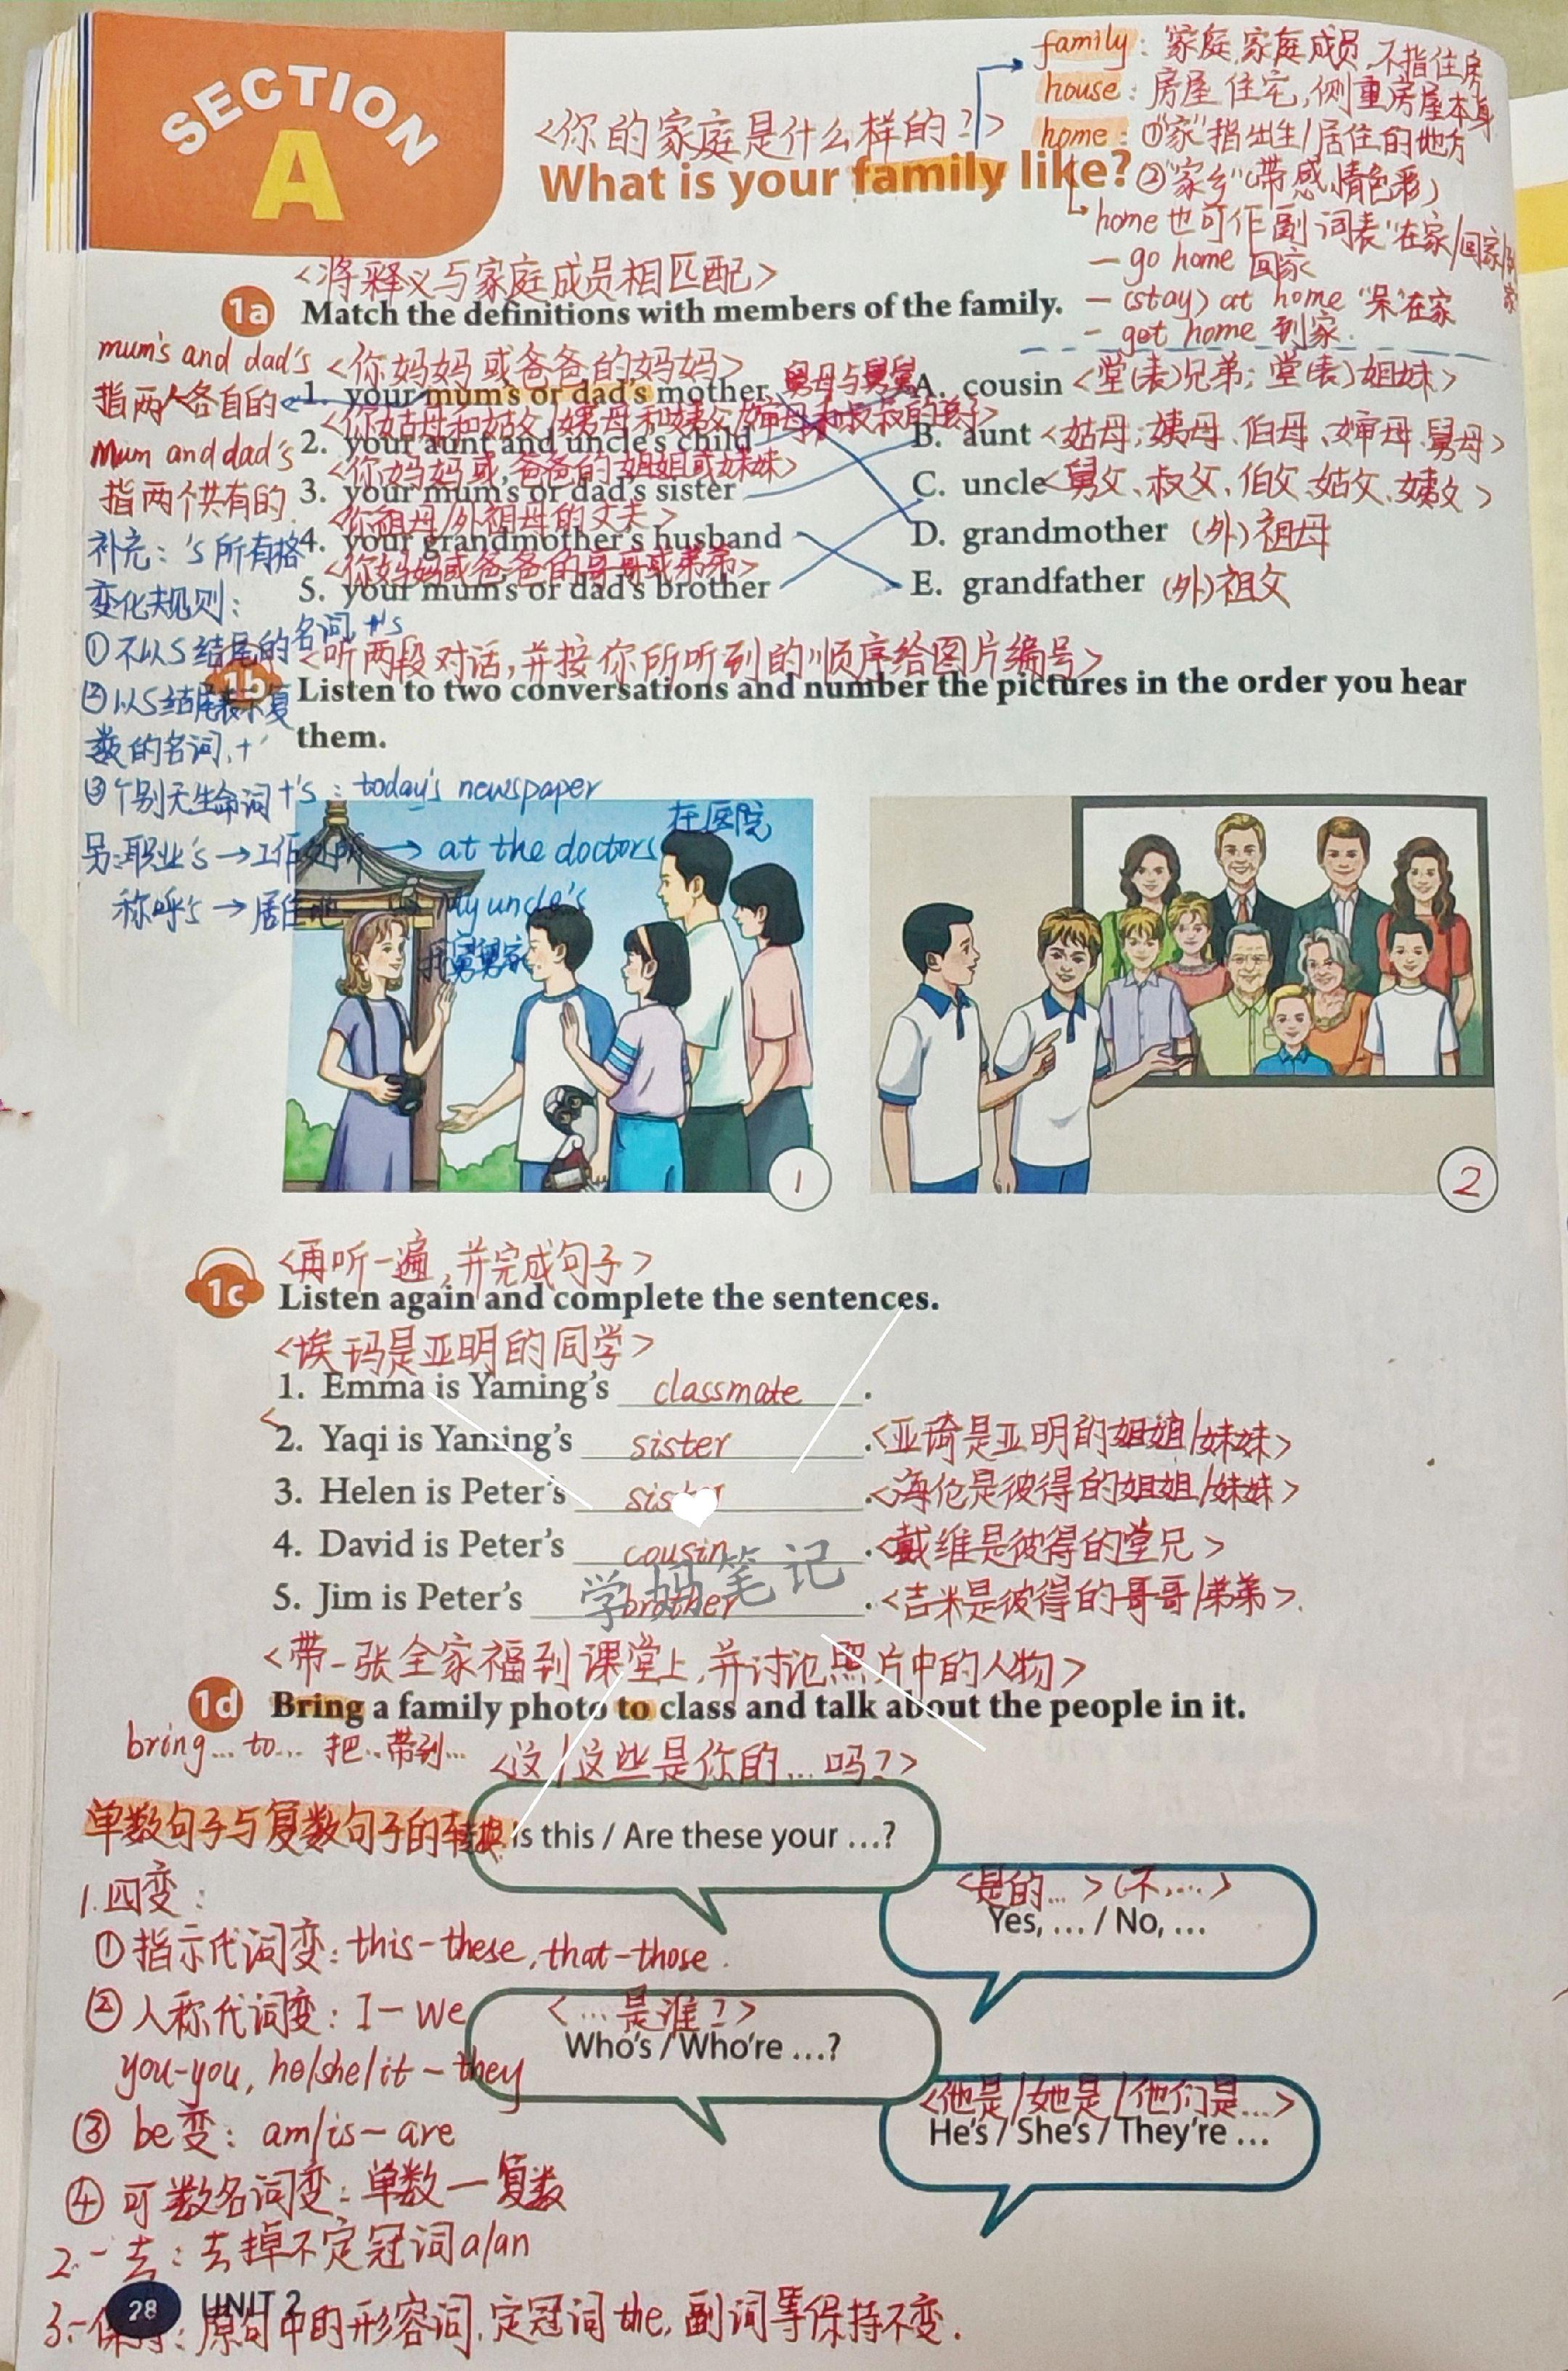 SECTION
A
<你的家庭是什么样的?>
What is your family like?
family: 家庭,家庭成员,不指住房
house: 房屋住宅,侧重房屋本身
home: ①"家"指出生/居住的地方
②"家乡"(带感情色彩)
home也可作副词表"在家/回家/到家
- go home 回家
- (stay) at home "呆"在家
- get home 到家.
<将释义与家庭成员相匹配>
1a Match the definitions with members of the family.
mum's and dad's
指两人各自的
mum and dad's
指两个共有的
<你妈妈或爸爸的妈妈>
1. your mum's or dad's mother
舅母与舅舅
<你姑母和姑父/姨母和姨父/婶母和叔叔的孩子>
2. your aunt and uncle's child
<你妈妈或爸爸的姐姐或妹妹>
3. your mum's or dad's sister
<你祖母/外祖母的丈夫>
4. your grandmother's husband
<你妈妈或爸爸的哥哥或弟弟>
5. your mum's or dad's brother
A. cousin <堂(表)兄弟; 堂(表)姐妹>
B. aunt <姑母;姨母、伯母、婶母、舅母>
C. uncle <舅父、叔父、伯父、姑父、姨父>
D. grandmother (外)祖母
E. grandfather (外)祖父
补充: 's所有格
变化规则:
①不以s结尾的名词,+'s
②以s结尾表示复
数的名词,+'
③个别无生命词+'s: today's newspaper
另:职业's→工作处所→at the doctors 在医院
称呼's→居住地 My uncle's
我舅舅家
<听两段对话,并按你所听到的顺序给图片编号>
1b Listen to two conversations and number the pictures in the order you hear
them.
1
2
<再听一遍,并完成句子>
1c Listen again and complete the sentences.
<埃玛是亚明的同学>
1. Emma is Yaming's classmate.
2. Yaqi is Yaming's sister. <亚琦是亚明的姐姐/妹妹>
3. Helen is Peter's sister. <海伦是彼得的姐姐/妹妹>
4. David is Peter's cousin. <戴维是彼得的堂兄>
5. Jim is Peter's brother. <吉米是彼得的哥哥/弟弟>.
学妈笔记
<带一张全家福到课堂上,并讨论照片中的人物>
1d Bring a family photo to class and talk about the people in it.
bring... to... 把..带到...
<这/这些是你的...吗?>
Is this / Are these your ...?
<是的...> (不,...>
Yes, ... / No, ...
<...是谁?>
Who's / Who're ...?
<他是/她是/他们是...>
He's / She's / They're ...
单数句子与复数句子的转换
1.四变:
①指示代词变: this-these, that-those.
②人称代词变: I-we
you-you, he/she/it-they
③be变: am/is-are
④可数名词变: 单数-复数
2.一去: 去掉不定冠词a/an
3.一保持: 原句中的形容词,定冠词the,副词等保持不变.
28 UNIT 2